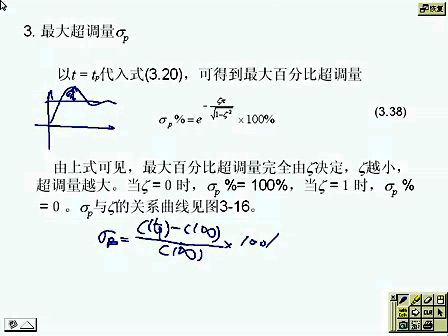 恢复
3. 最大超调量σp
以t = tp代入式(3.20)，可得到最大百分比超调量
σp% = e^(-ζπ/√(1-ζ²)) ×100%
(3.38)
由上式可见，最大百分比超调量完全由ζ决定，ζ越小，
超调量越大。当ζ = 0时，σp %= 100%，当ζ = 1时，σp %
= 0 。σp与ζ的关系曲线见图3-16。
= (C(tp) - C(∞)) / C(∞) × 100%